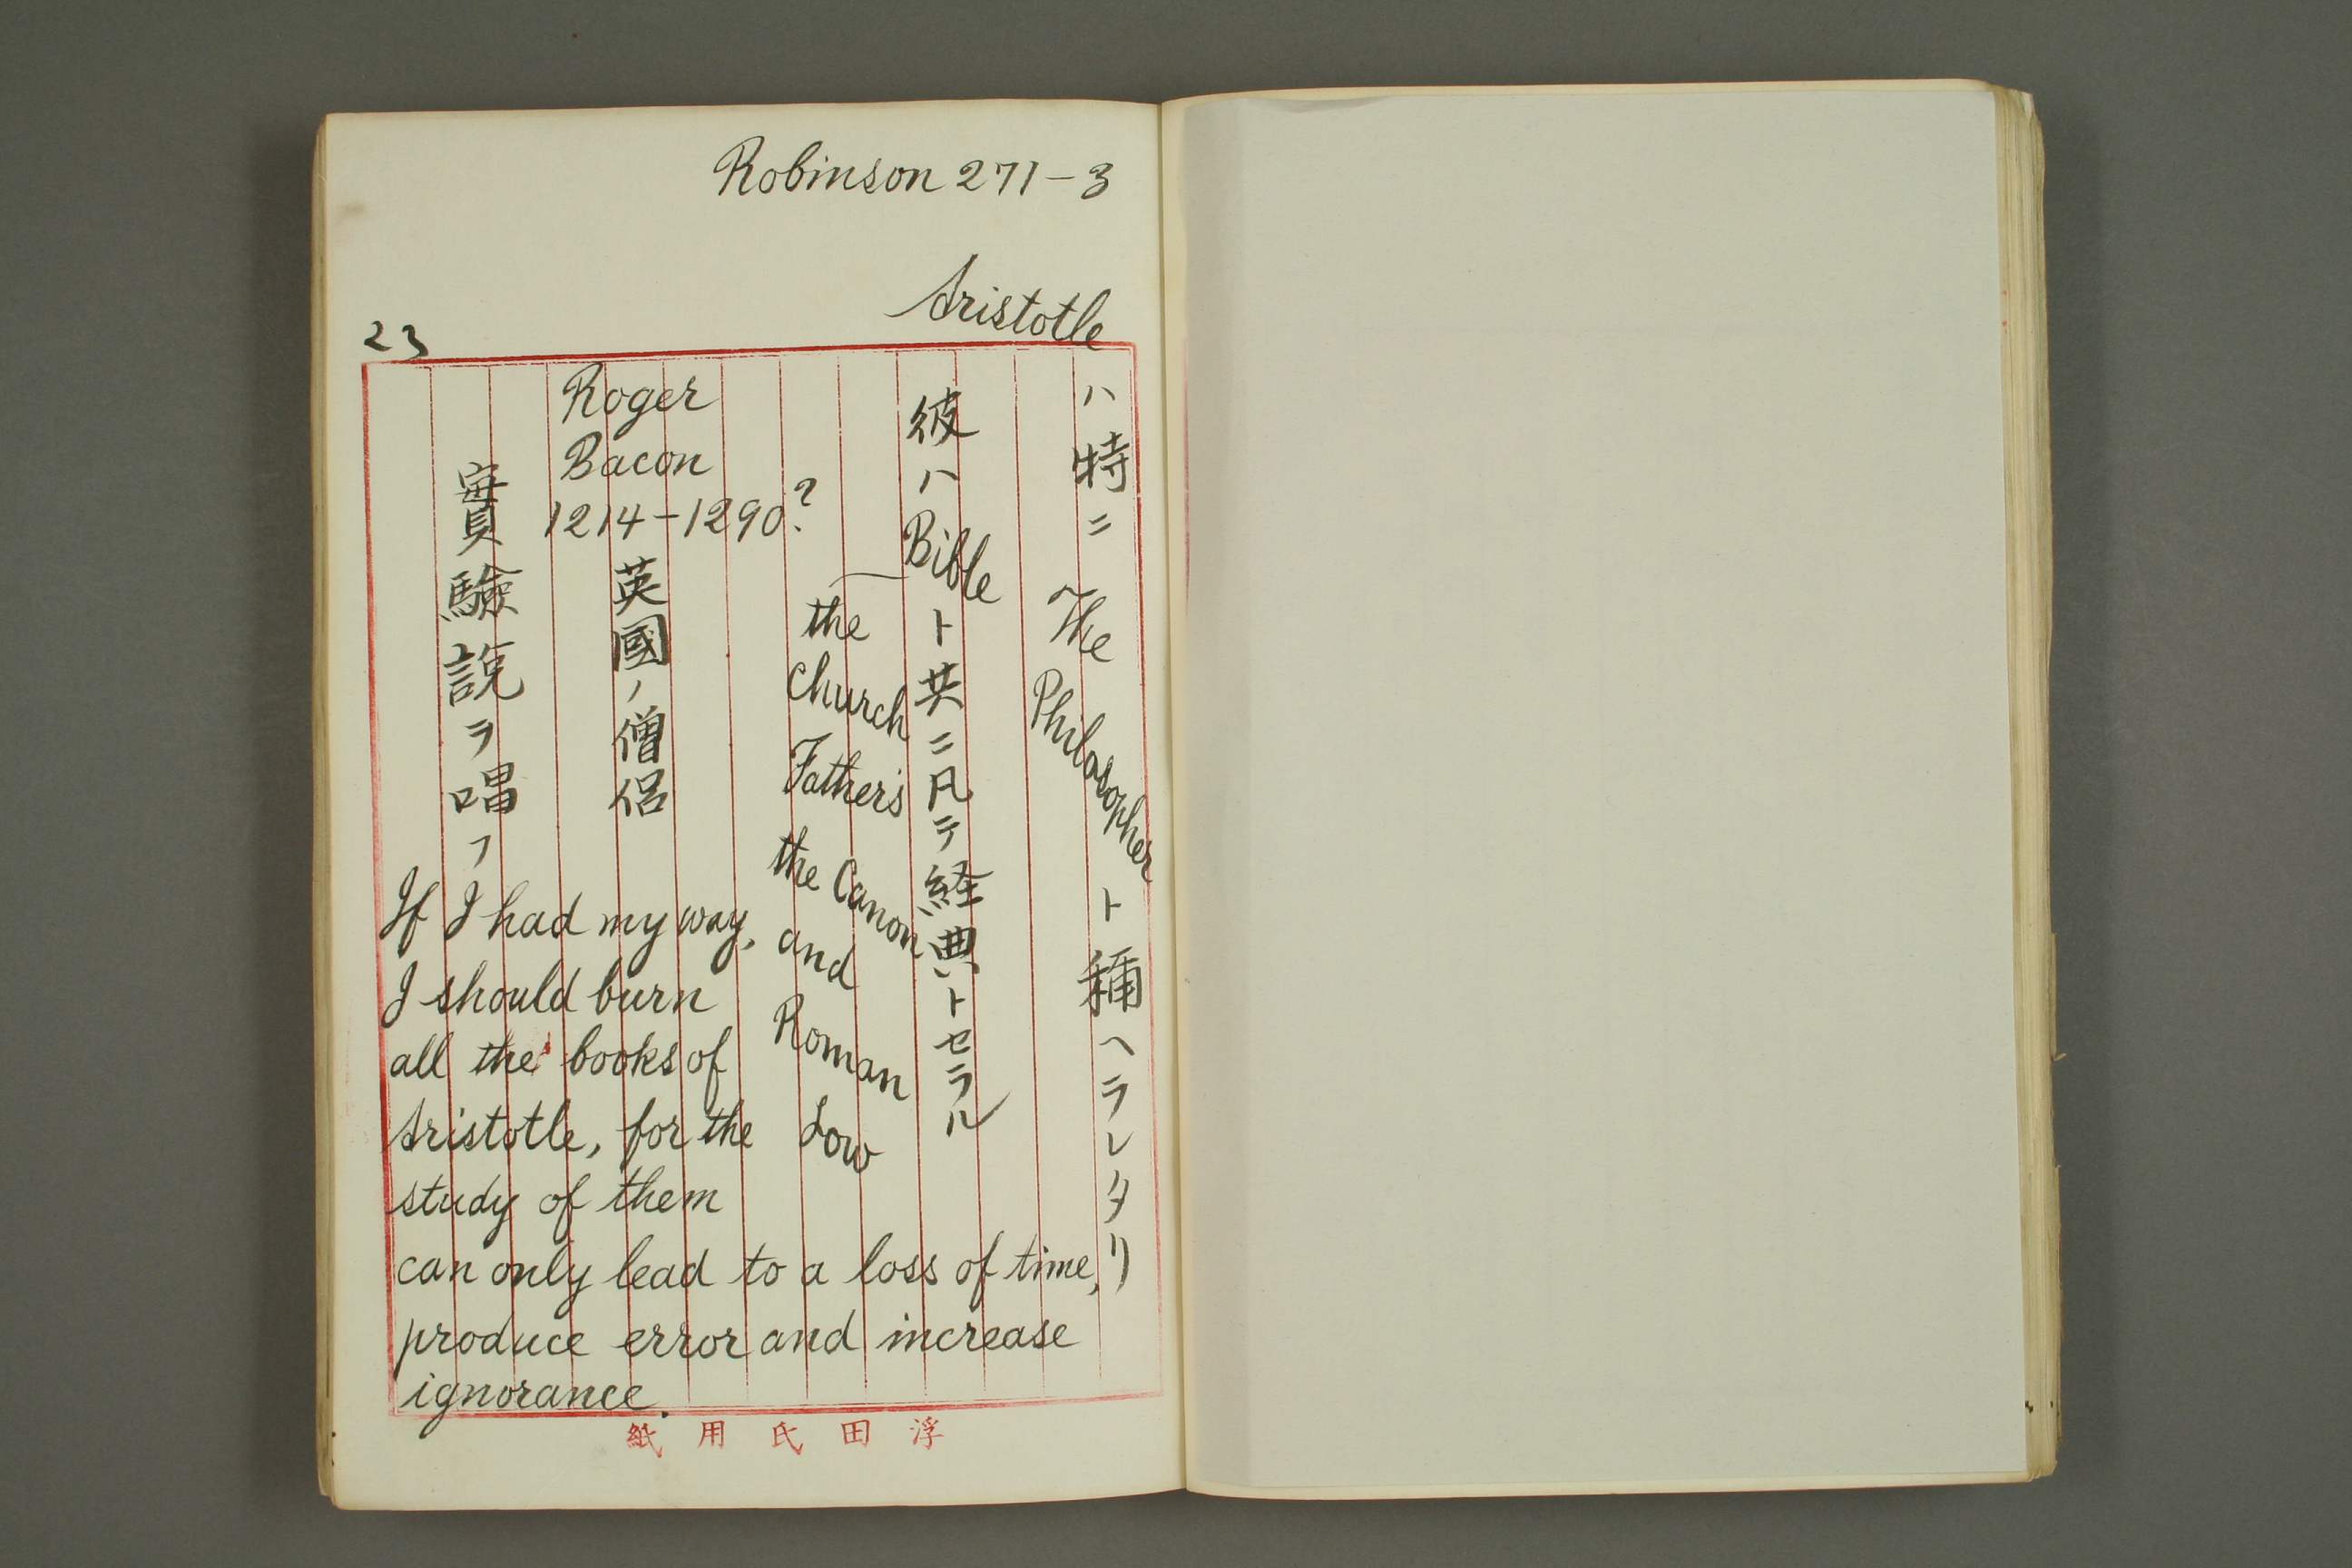 Robinson 271-3
23
Aristotle
ハ特ニ The Philosopher ト稱ヘラレタリ
彼ハ Bible ト共ニ凡テ経典トセラル
the
Church
Fathers
the Canon
and
Roman
Low
Roger
Bacon
1214-1290?
英國ノ僧侶
實驗説ヲ唱フ
If I had my way,
I should burn
all the books of
Aristotle, for the
study of them
can only lead to a loss of time,
produce error and increase
ignorance.
浮田氏用紙